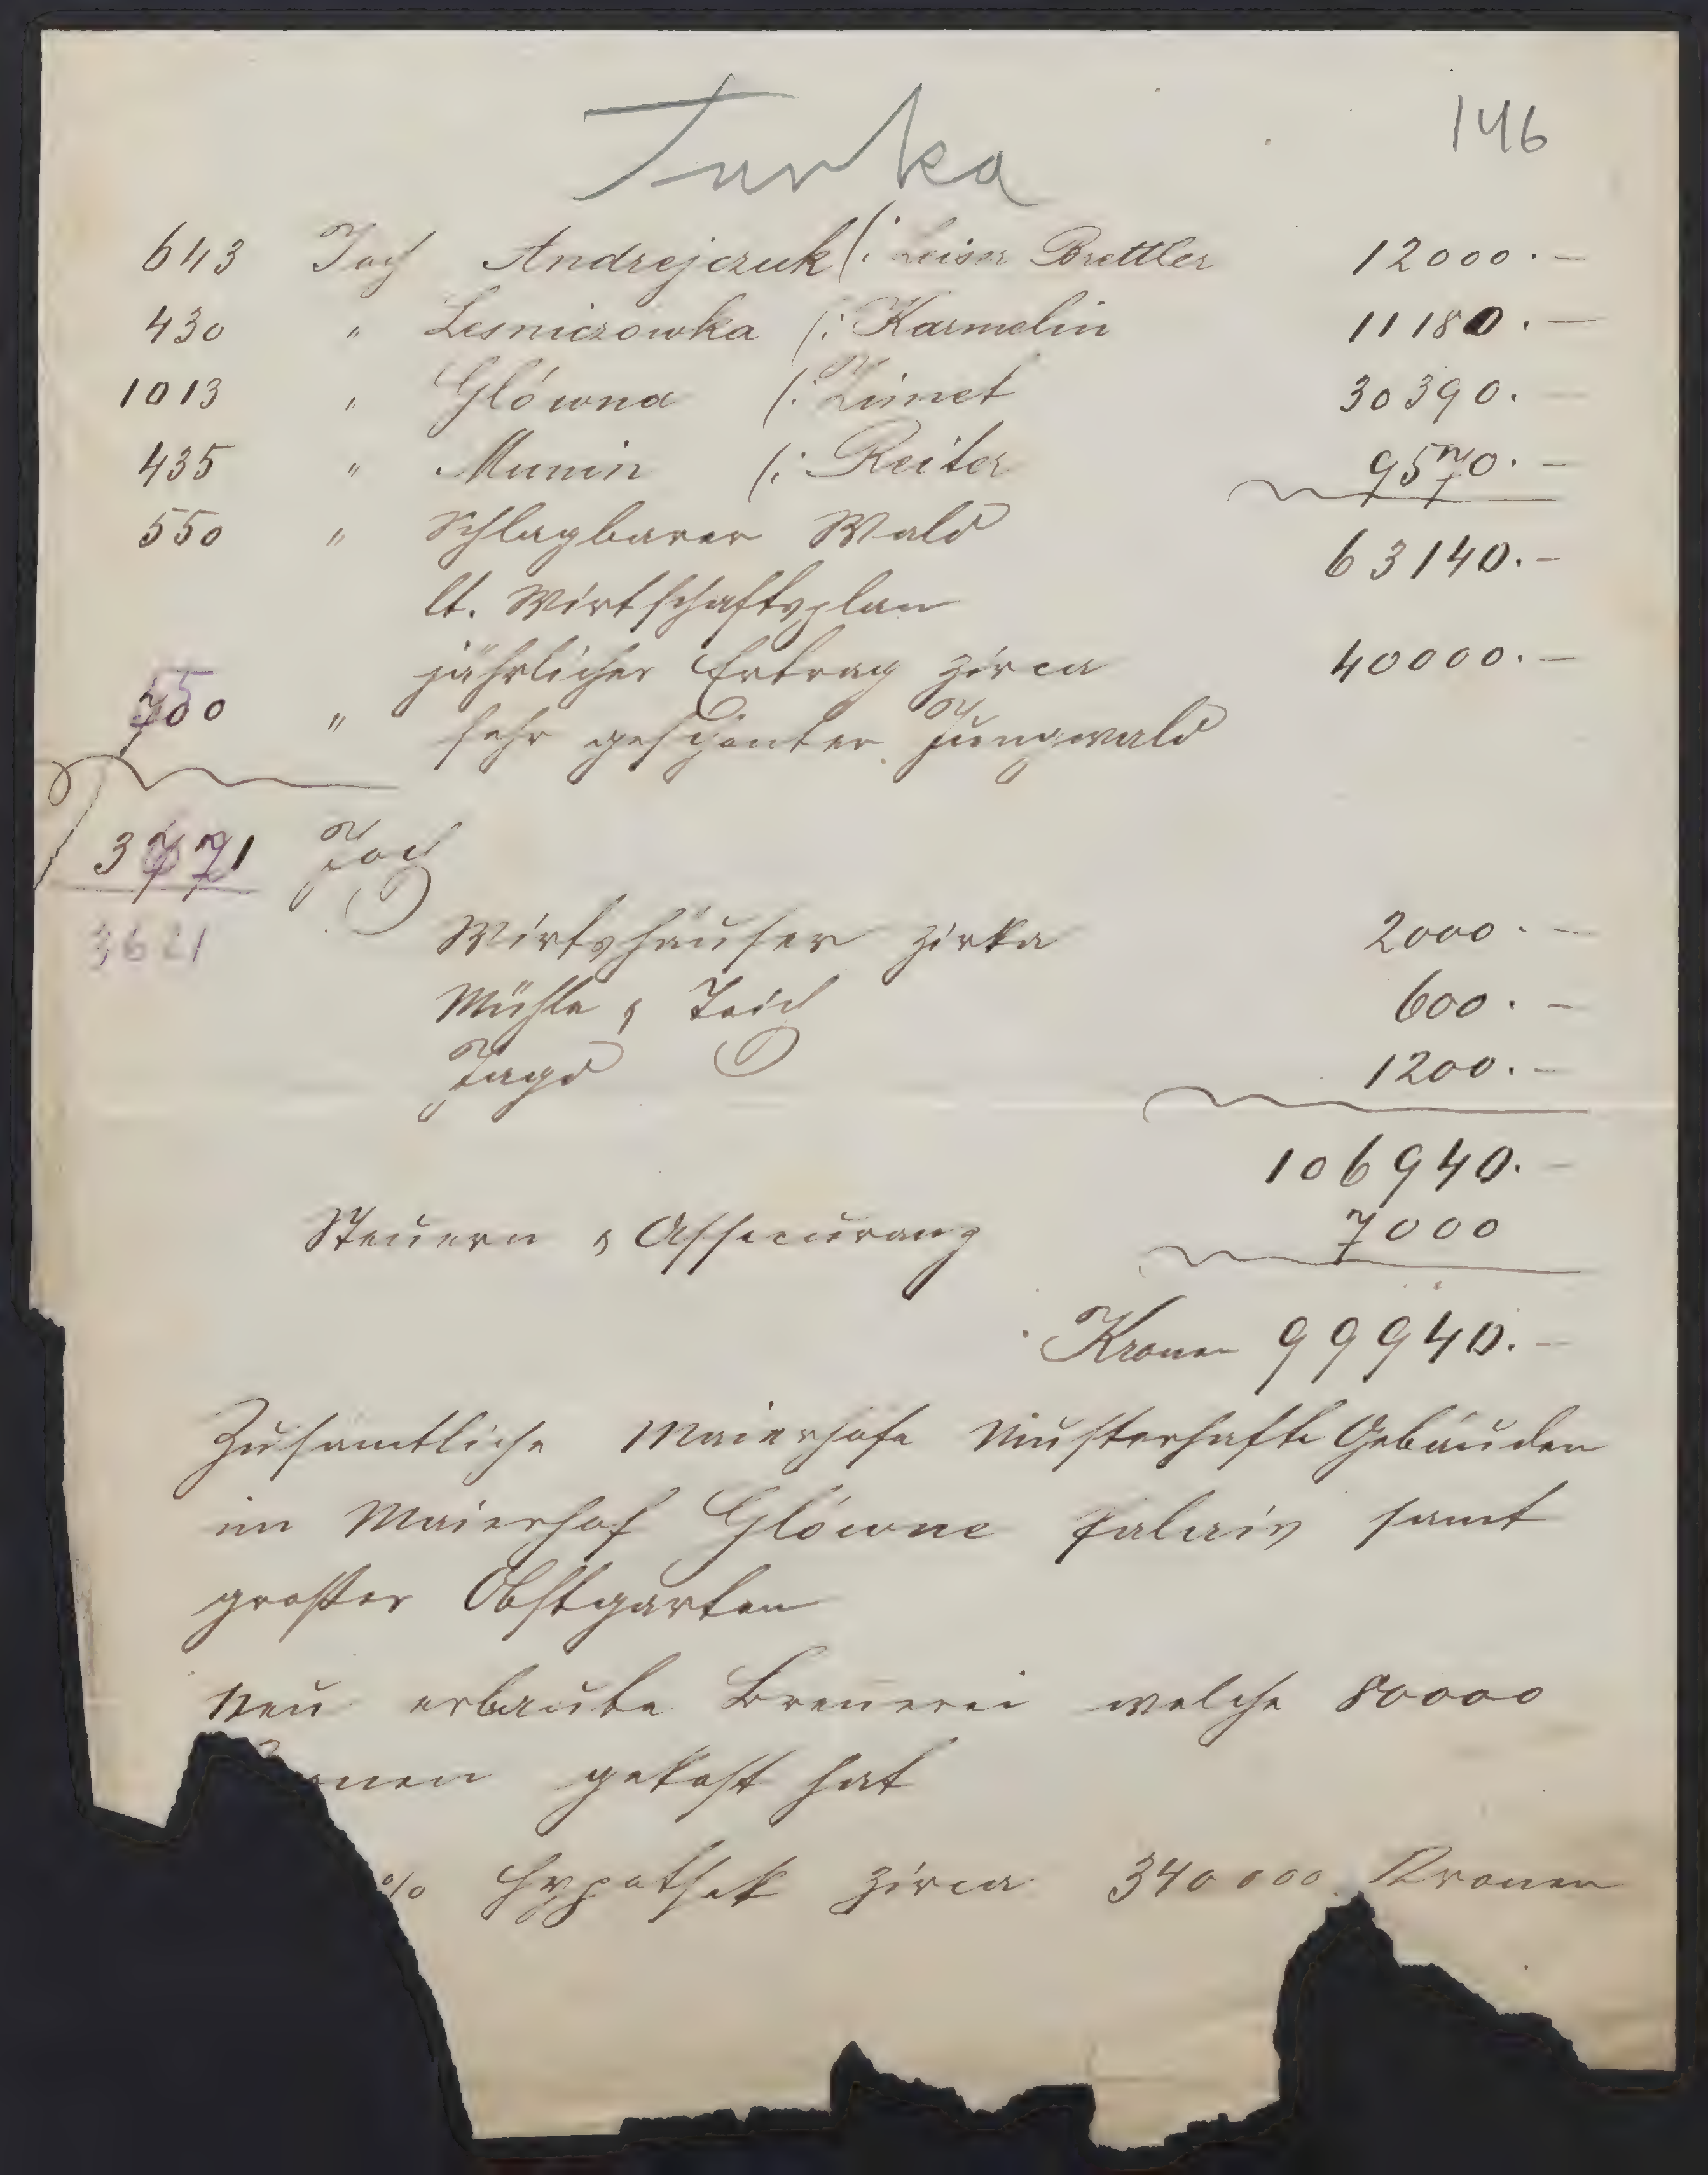 Turka 146
643 Joch Andrejczuk /: Leiser Brettler 12000.–
430 " Lesniczowka /: Karmelin 11180.–
1013 " Glówna /: Zimet 30390.–
435 " Munin /: Reiter 9570.–
550 " Schlagbarer Wald 63140.–
lt. Wirtschaftsplan
jährlicher Ertrag zirca 40000.–
" sehr geschonter Jungwald
3771 Joch
3621
Wirtshäuser zirka 2000.–
Mühle & Teich 600.–
Jagd 1200.–
106940.–
Steuern & Assecuranz 7000
Kronen 99940.–
Zusamtliche Maierhofe Musterhafte Gebäuden
im Maierhof Glówne palais samt
großer Obstgarten
Neu erbaute Brennerei welche 80000
onen gekost hat
% Hypothek zirca 340000 Kronen